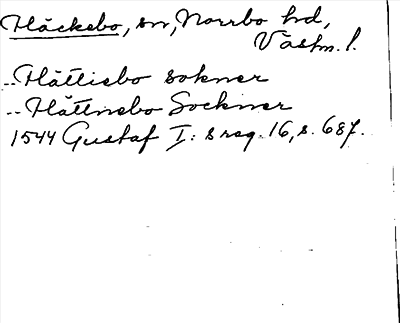 Häckebo, sn, Norrbo hd,
Västm. l.
--Hättiebo sokner
--Hättnebo Sockner
1544 Gustaf I: s reg. 16, s. 687.